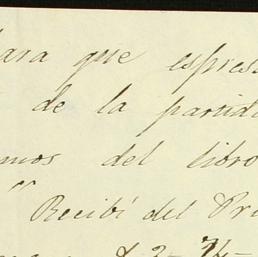 ara que espres
de la partid
mos del libro
" Recibí del Pr
$ 2 - 76 -